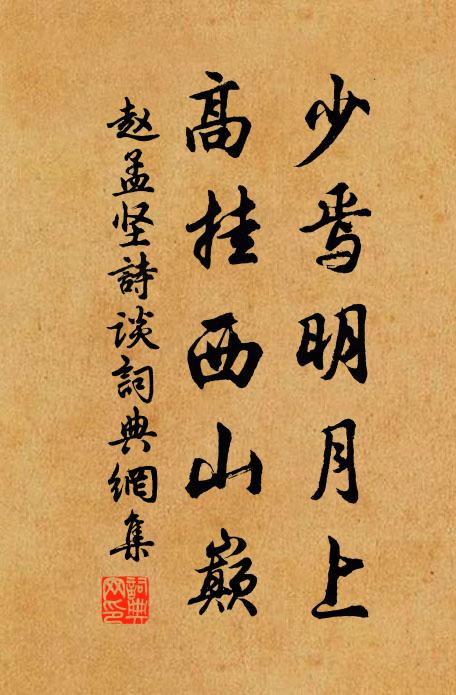 少焉明月上
高挂西山巅
赵孟坚詩谈詞典網集
詞典
网印